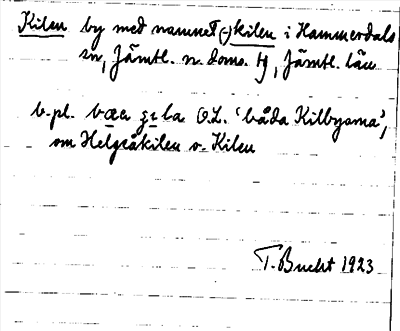 Kilen by med namnet (-)kilen i Hammerdals
sn, Jämtl. n. doms. hj, Jämtl. län
b. pl. O.L. 'båda Kilbyarna',
om Helgeåkilen o. Kilen
T. Bucht 1923